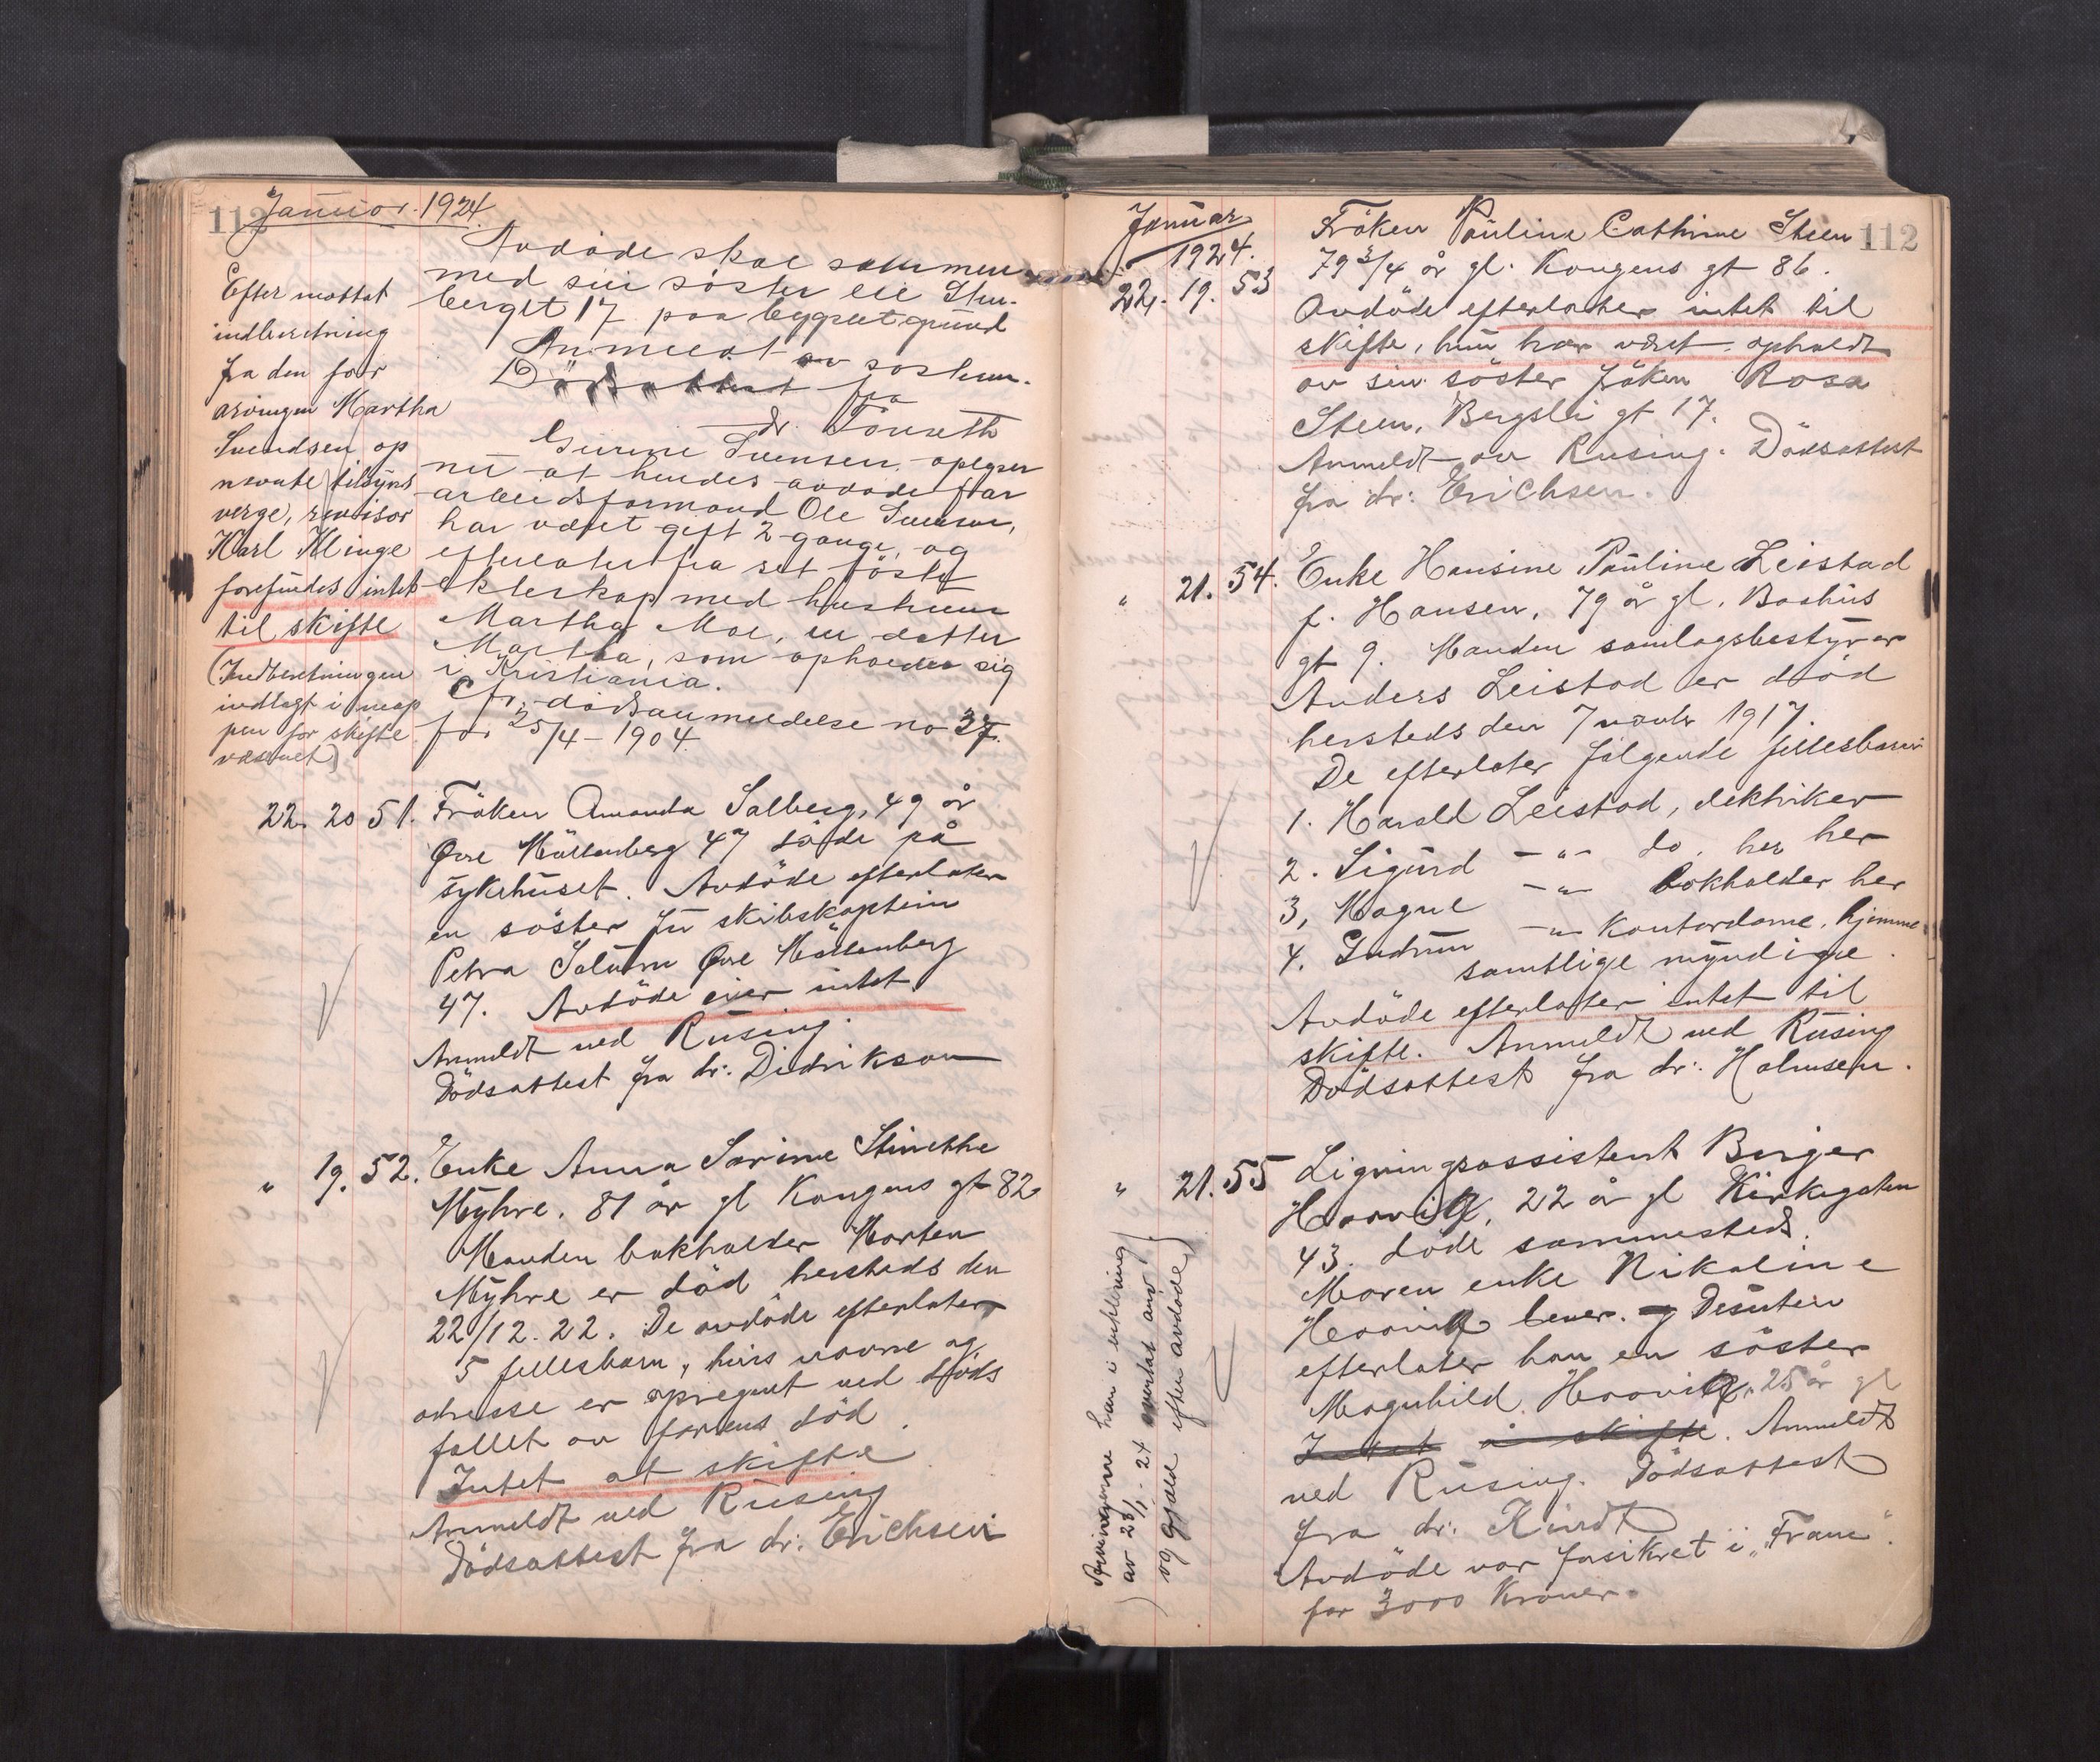 112
Januar. 1924.
Efter mottat
indberetning
fra den for
arvingen Martha
Svendsen op
nævnte tilsyns
verge, revisor
Karl Klinge
forefindes intet
til skifte
(Indberetningen
indlagt i map
pen for skifte
væsenet)
Avdøde skal sammen
med sin söster eie Sten-
berget 17 paa bygselgrund
Anmeldt av søsteren.
Dödsattest fra
dr. Tönseth
Gurine Svensen opgiver
nu at hendes avdøde far
arbeidsformand Ole Svensen,
har været gift 2 gange, og
efterlater fra sit første
ekteskap med hustru
Martha Moe, en datter
Martha, som opholder sig
i Kristiania.
Cfr. dødsanmeldelse no 37.
for 25/4 - 1904.
22. 20 51. Fröken Amanda Salberg, 49 år
Øvre Möllenberg 47 döde på
sykehuset. Avdöde efterlater
en söster fru skibskaptein
Petra Solum Øvre Möllenberg
47. Avdöde eier intet
Anmeldt ved Rusing.
Dödsattest fra dr. Didrikson
" 19. 52. Enke Anna Sarine Stinethe
Myhre. 81 år gl Kongens gt 82
Manden bokholder Morten
Myhre er död hersteds den
22/12. 22. De avdöde efterlater
5 fellesbarn, hvis navne og
adresse er opregnet ved döds
fallet av farens död.
Intet at skifte
Anmeldt ved Rusing
Dödsattest fra dr. Erichsen
112
Januar
1924.
22. 19. 53
Fröken Pauline Cathrine Steen
79 3/4 år gl. Kongens gt 86.
Avdöde efterlater intet til
skifte, hun har været opholdt
av sin söster fröken Rosa
Steen, Bergsli gt 17.
Anmeldt av Rusing. Dödsattest
fra dr. Erichsen.
" 21. 54. Enke Hansine Pauline Leistad
f. Hansen, 79 år gl. Bakhus
gt 9. Manden samlagsbestyrer
Anders Leistad er död
hersteds den 7 novbr 1917.
De efterlater følgende fellesbarn
1. Harald Leistad, elektriker
2. Sigurd -"- do. her her
3, Magne -"- bokholder her
4. Gudrun -"- Kontordame, hjemme.
samtlige myndige.
Avdöde efterlater intet til
skifte. Anmeldt ved Rusing
Dödsattest fra dr. Holmsen.
" 21. 55 Ligningsassistent Birger
Hoovig, 22 år gl Kirkegaten
43. döde sammesteds.
Moren enke Nikoline
Hoovig lever. Desuten
efterlater han en söster
Magnhild Hoovig, 25 år gl
Intet å skifte. Anmeldt
ved Rusing. Dödsattest
fra dr. Kindt
Avdöde var forsikret i „Fram".
for 3000 Kroner.
Arvingerne har i erklæring
av 28/1 - 24 overtat arv
og gjæld efter avdøde